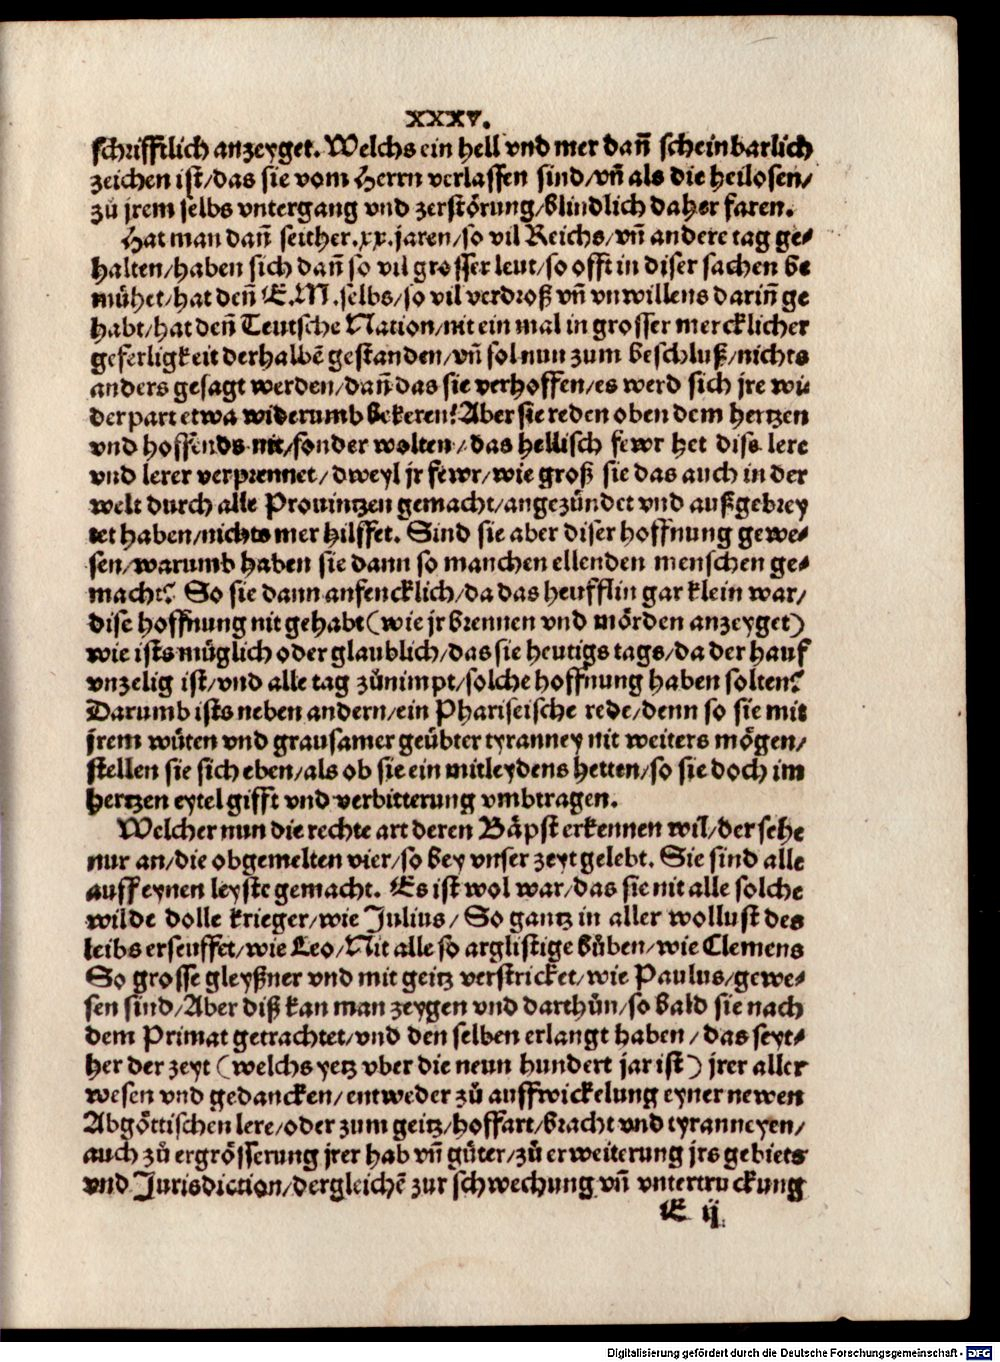 XXXV.
schrifftlich anzeyget. Welchs ein hell vnd mer dañ scheinbarlich
zeichen ist/das sie vom Herrn verlassen sind/vñ als die heilosen/
zů jrem selbs vntergang vnd zerstörung/blindlich daher faren.
Hat man dañ seither.xx.jaren/so vil Reichs/vñ andere tag ge⸗
halten/haben sich dañ so vil grosser leut/so offt in diser sachen be
mühet/hat deñ E.M.selbs/so vil verdroß vñ vnwillens dariñ ge
habt/hat deñ Teutsche Nation/nit ein mal in grosser mercklicher
geferligkeit derhalbẽ gestanden/vñ sol nun zum beschluß/nichts
anders gesagt werden/dañ das sie verhoffen/es werd sich jre wi
derpart etwa widerumb bekeren? Aber sie reden oben dem hertzen
vnd hoffends nit/sonder wolten/das hellisch fewr het dise lere
vnd lerer verprennet/dweyl jr fewr/wie groß sie das auch in der
welt durch alle Prouintzen gemacht/angezündet vnd außgebrey
tet haben/nichts mer hilffet. Sind sie aber diser hoffnung gewe⸗
sen/warumb haben sie dann so manchen ellenden menschen ge⸗
macht? So sie dann anfencklich/da das heufflin gar klein war/
dise hoffnung nit gehabt(wie jr brennen vnd mörden anzeyget)
wie ists müglich oder glaublich/das sie heutigs tags/da der hauf
vnzelig ist/vnd alle tag zůnimpt/solche hoffnung haben solten?
Darumb ists neben andern/ein Phariseische rede/denn so sie mit
jrem wüten vnd grausamer geübter tyranney nit weiters mögen/
stellen sie sich eben/als ob sie ein mitleydens hetten/so sie doch im
hertzen eytel gifft vnd verbitterung vmbtragen.
Welcher nun die rechte art deren Bäpst erkennen wil/der sehe
nur an/die obgemelten vier/so bey vnser zeyt gelebt. Sie sind alle
auff eynen leyste gemacht. Es ist wol war/das sie nit alle solche
wilde dolle krieger/wie Julius/ So gantz in aller wollust des
leibs erseuffet/wie Leo/Nit alle so arglistige bůben/wie Clemens
So grosse gleyßner vnd mit geitz verstricket/wie Paulus/gewe⸗
sen sind/Aber diß kan man zeygen vnd darthůn/so bald sie nach
dem Primat getrachtet/vnd den selben erlangt haben/das seyt⸗
her der zeyt (welchs yetz vber die neun hundert jar ist) jrer aller
wesen vnd gedancken/entweder zů auffwickelung eyner newen
Abgöttischen lere/oder zum geitz/hoffart/bracht vnd tyranneyen/
auch zů ergrösserung jrer hab vñ güter/zů erweiterung jrs gebiets
vnd Jurisdiction/dergleichẽ zur schwechung vñ vntertruckung
E ij
Digitalisierung gefördert durch die Deutsche Forschungsgemeinschaft - DFG